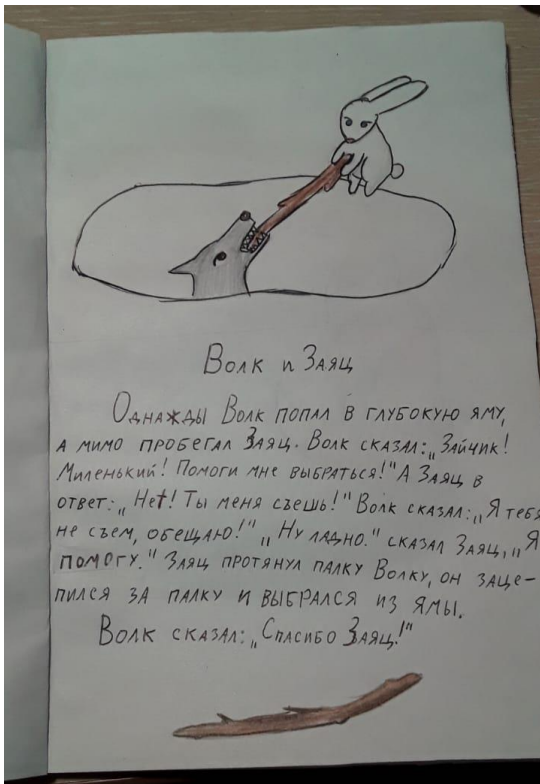 Волк и Заяц
Однажды Волк попал в глубокую яму,
а мимо пробегал Заяц. Волк сказал: „Зайчик!
Миленький! Помоги мне выбраться!" А Заяц в
ответ: „Нет! Ты меня съешь!" Волк сказал: „Я тебя
не съем, обещаю!" „Ну ладно." сказал Заяц, „Я
помогу." Заяц протянул палку Волку, он заце-
пился за палку и выбрался из ямы.
Волк сказал: „Спасибо Заяц!"